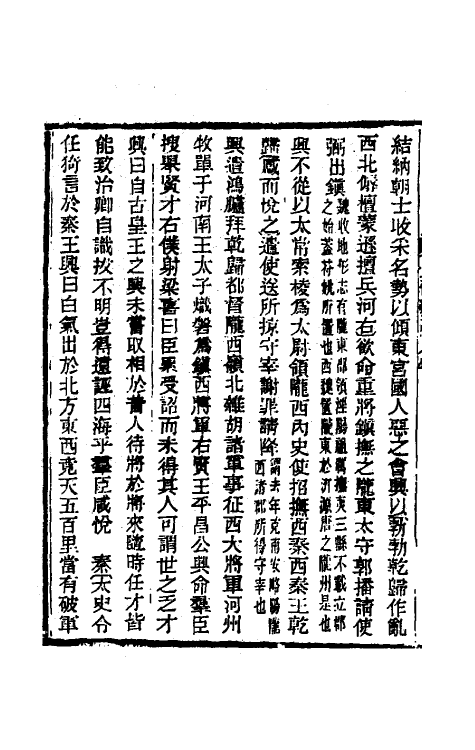 結納朝士收采名勢以傾東宮國人惡之會興以勃勃乾歸作亂
西北傉檀蒙遜擅兵河右欲命重將鎭撫之隴東太守郭播請使
弼出鎭魏收地形志有隴東郡領涇陽祖厲撫夷三縣不載立郡之始蓋苻姚所置也西魏置隴東於汧源唐之隴州是也
興不從以太常索稜爲太尉領隴西內史使招撫西秦西秦王乾
歸感而悅之遣使送所掠守宰謝罪請降謂去年克南安略陽隴西諸郡所得守宰也
興遣鴻臚拜乾歸都督隴西嶺北雜胡諸軍事征西大將軍河州
牧單于河南王太子熾磐爲鎭西將軍右賢王平昌公興命羣臣
搜舉賢才右僕射梁喜曰臣累受詔而未得其人可謂世之乏才
興曰自古皇王之興未嘗取相於昔人待將於將來隨時任才皆
能致治卿自識拔不明豈得遠誣四海乎羣臣咸悅　秦太史令
任猗言於秦王興曰白氣出於北方東西竟天五百里當有破軍